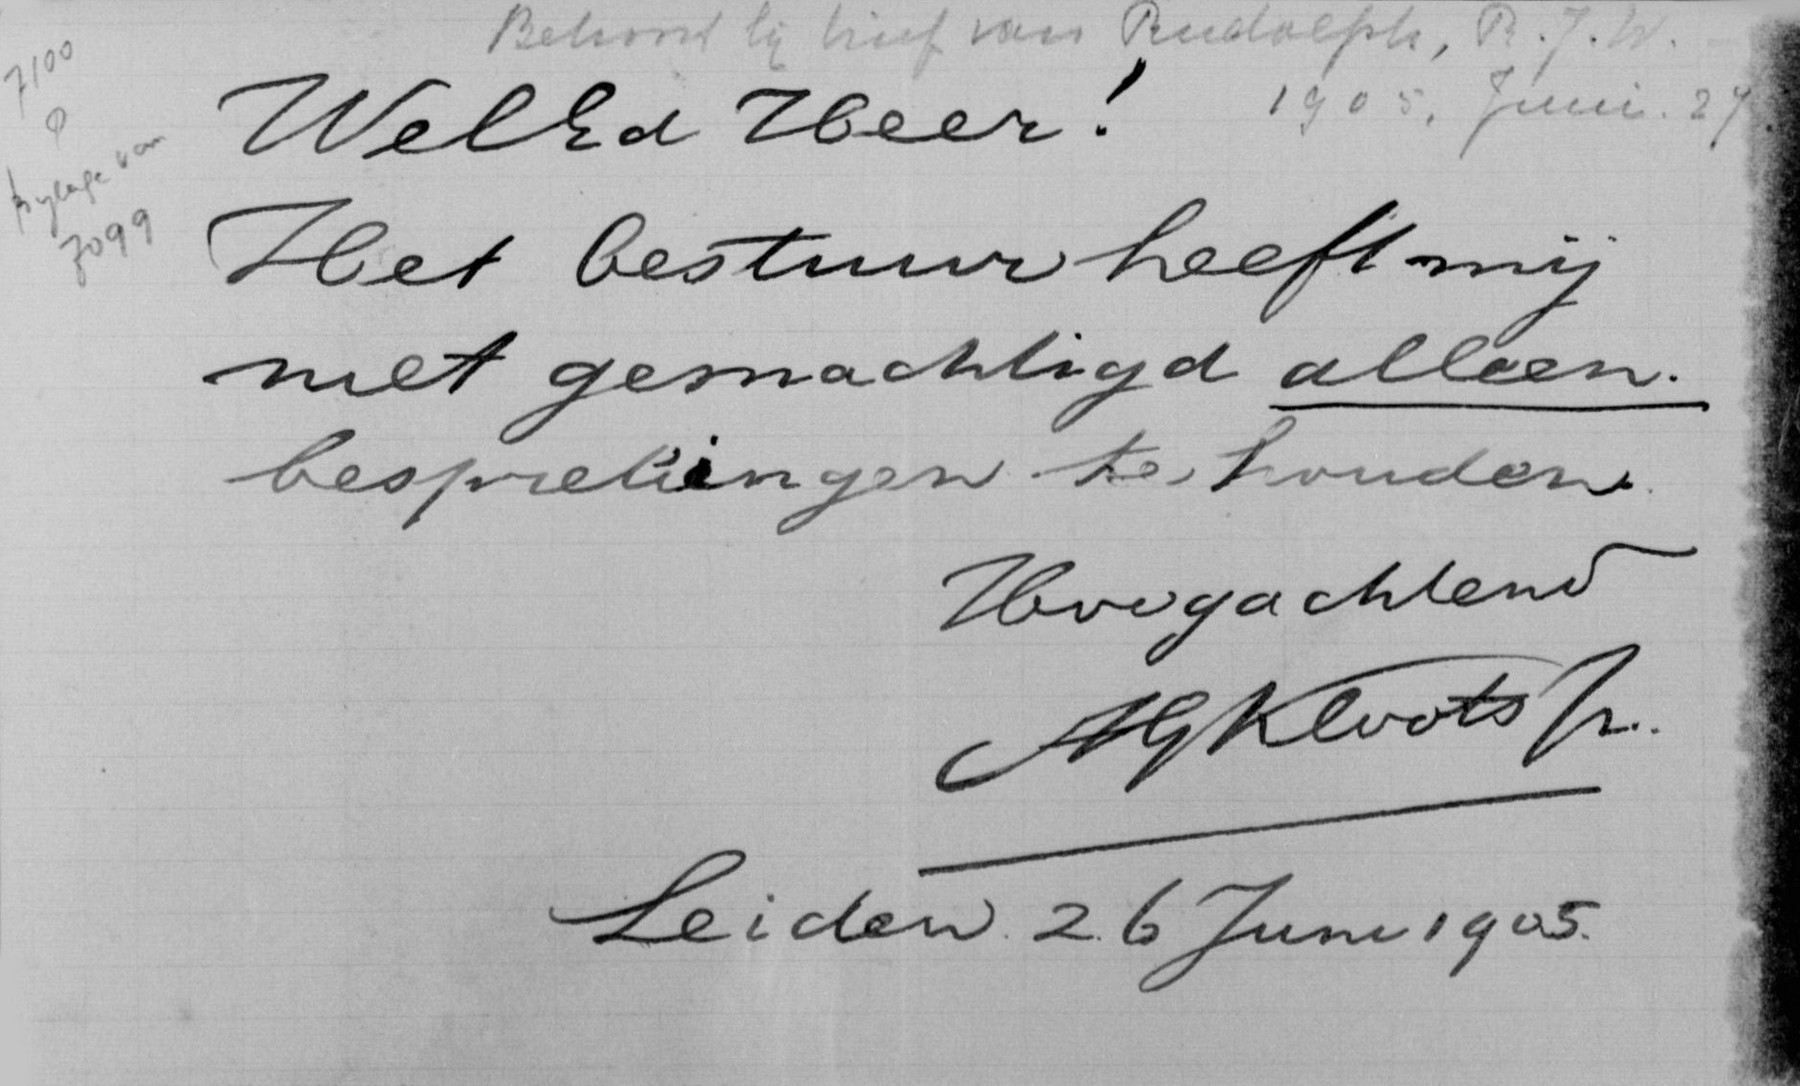 Behoort bij brief van Rudolph, R. J. W.
1905, Juni. 27.
7100
bijlage van
7099
WelEd Heer!
Het bestuur heeft mij
niet gemachtigd alleen.
besprekingen te houden.
Hoogachtend
AGKloots Jr.
Leiden 26 Juni 1905.